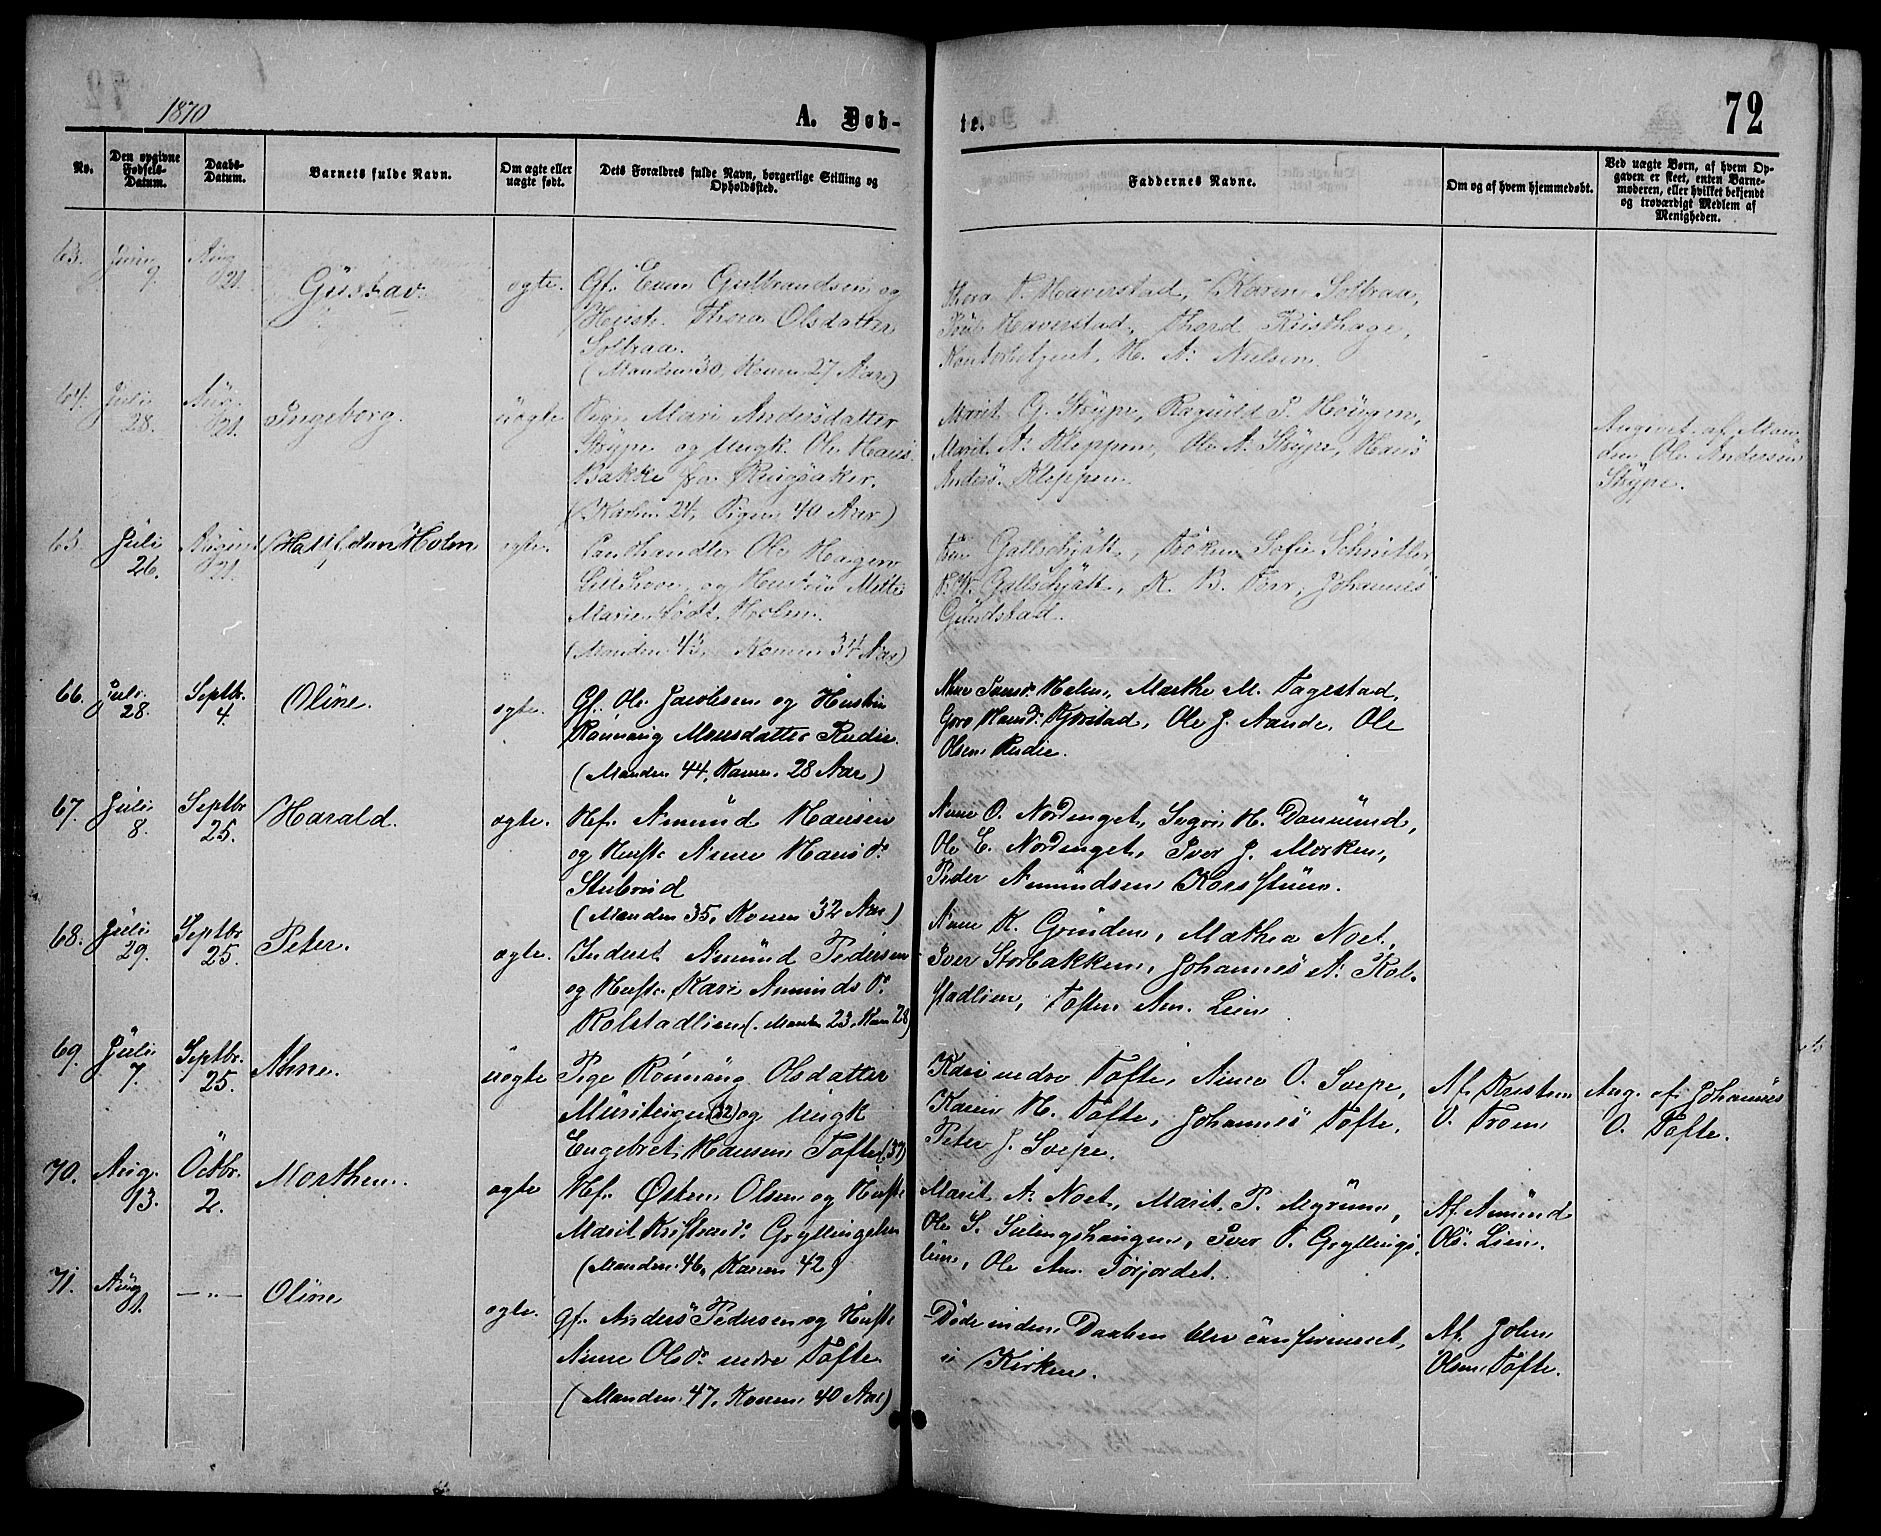 1870
A. Døb-
te.
72
No.
Den opgivne Fødsels-Datum.
Daabs-Datum.
Barnets fulde Navn.
Om ægte eller uægte født.
Dets Forældres fulde Navn, borgerlige Stilling og Opholdssted.
Faddernes Navne.
Om og af hvem hjemmedøbt.
Ved uægte Børn, af hvem Opgaven er skeet, enten Barnemoderen, eller hvilket bekjendt og troværdigt Medlem af Menigheden.
63. Juni 9. Aug 21. Gustav. ægte. Gf. Even Gulbrandsen og
Hustr. Thora Olsdatter
Solbraa.
(Manden 30, Konen 27 Aar)
Thora Haverstad, Karen Solbraa,
Haverstad, Thord Kristhage,
Kontorbetjent H. A. Nielsen
64. Juli 28. Aug. 21. Ingeborg. uægte Pige Mari Andersdatter
Strype og Ungk. Ole Hans.
Bakke fra Ringsaker.
(Karlen 24, Pigen 40 Aar)
Marit G. Strype, Ragnild P. Hougen,
Marit A. Kleppen, Ole A. Strype, Hans
Anders. Kleppen.
Angivet af Man-
den Ole Andersen
Strype.
65. Juli 26. August 21. Halfdan Holm ægte. Landhandler Ole Hagen
og Hustru Mette
Marie født Holm.
(Manden 43, Konen 34 Aar)
Gallschjøtt, Frøken Sofie Schnitler,
Gallschjøtt, K. B. Johannes
Gundstad.
66. Juli 28. Septbr. 4 Oline. ægte. Gf. Ole Jacobsen og Hustru
Rønnaug Monsdatter Rudi.
(Manden 44, Konen 28 Aar)
Holen, Marthe M. Tagestad,
Gro Hansd. Kjørstad, Ole J. Aande, Ole
Olsen Rudie.
67. Juli 8. Septbr 25. Harald. ægte. Hf. Amund Hansen
og Hustr. Anne Hans D.
Stubrud
(Manden 35, Konen 32 Aar)
Anne O. Nordenget, Sigri H. Danmund,
Ole E. Nordenget, Iver J. Morken,
Peder Amundsen Kors
68. Juli 29. Septbr 25. Peter. ægte. Inderst Amund Pedersen
og Hustr. Kari Amunds D.
Kolstadlien (Manden 23, Konen 28)
Anne K. Grinden, Mathea Noet,
Iver Storbakken, Johannes A. Kol-
stadlien, Tosten Am. Lien
69. Juli 7. Septbr. 25. Anne. uægte Pige Rønnaug Olsdatter
(22) og Ungk
Engebret Hansen Tofte (37)
Kari nedre Tofte, Anne O. Svepe,
Karen H. Tofte, Johannes Tofte,
Peter J. Svepe.
Af Karsten
O. Trom
Ang. af Johannes
O. Tofte.
70. Aug. 13. Octbr. 2. Morthen. ægte Hf. Østen Olsen og Hustr
Marit Gryllingslien
(Manden 46, Konen 42)
Marit A. Noet, Marit P. Mgrunn,
Ole S. Sulingshaugen, Iver O. Gryllings-
lien, Ole Am. Torjordet.
Af Amund
Ols. Lien.
71. Aug — " — Oline ægte. Gf. Anders Pedersen og Hustr
Anne Olsd. nedre Tofte
(Manden 47, Konen 40 Aar)
Døde inden Daaben blev confirmeret
i Kirken.
Af John
Olsen Tofte.